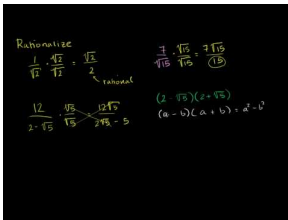 Rationalize
1/√2 · √2/√2 = √2/2
rational
7/√15 · √15/√15 = 7√15/15
12/(2-√5) · √5/√5 12√5/(2√5 - 5)
(2-√5)(2+√5)
(a-b)(a+b) = a²-b²